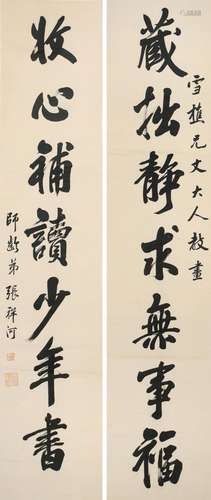 雪樵兄丈大人教畫
藏拙靜求無事福
收心補讀少年書
弟張祥河